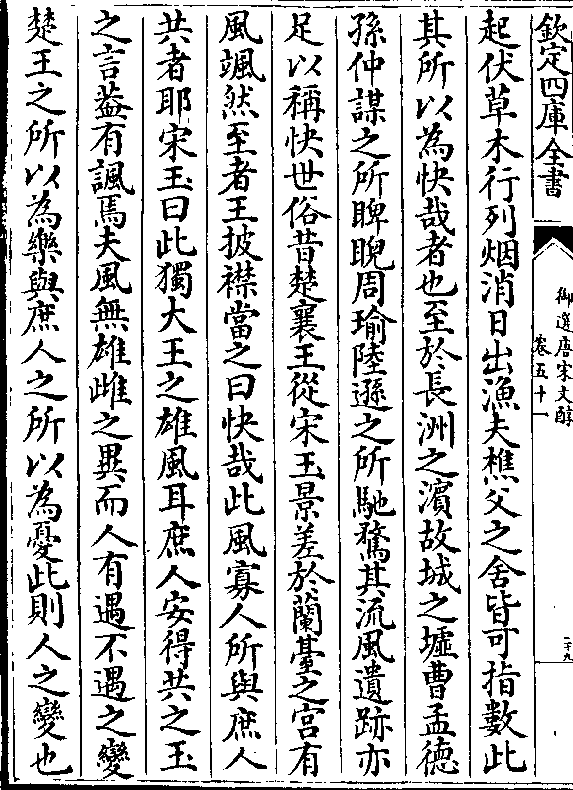 欽定四庫全書
御選唐宋文醇
卷五十一
二十九
起伏草木行列烟消日出漁夫樵父之舍皆可指數此
其所以為快哉者也至於長洲之濵故城之墟曹孟德
孫仲謀之所睥睨周瑜陸遜之所馳騖其流風遺跡亦
足以稱快世俗昔楚襄王從宋玉景差於蘭臺之宮有
風颯然至者王披襟當之曰快哉此風寡人所與庶人
共者耶宋玉曰此獨大王之雄風耳庶人安得共之玉
之言葢有諷焉夫風無雄雌之異而人有遇不遇之變
楚王之所以為樂與庶人之所以為憂此則人之變也